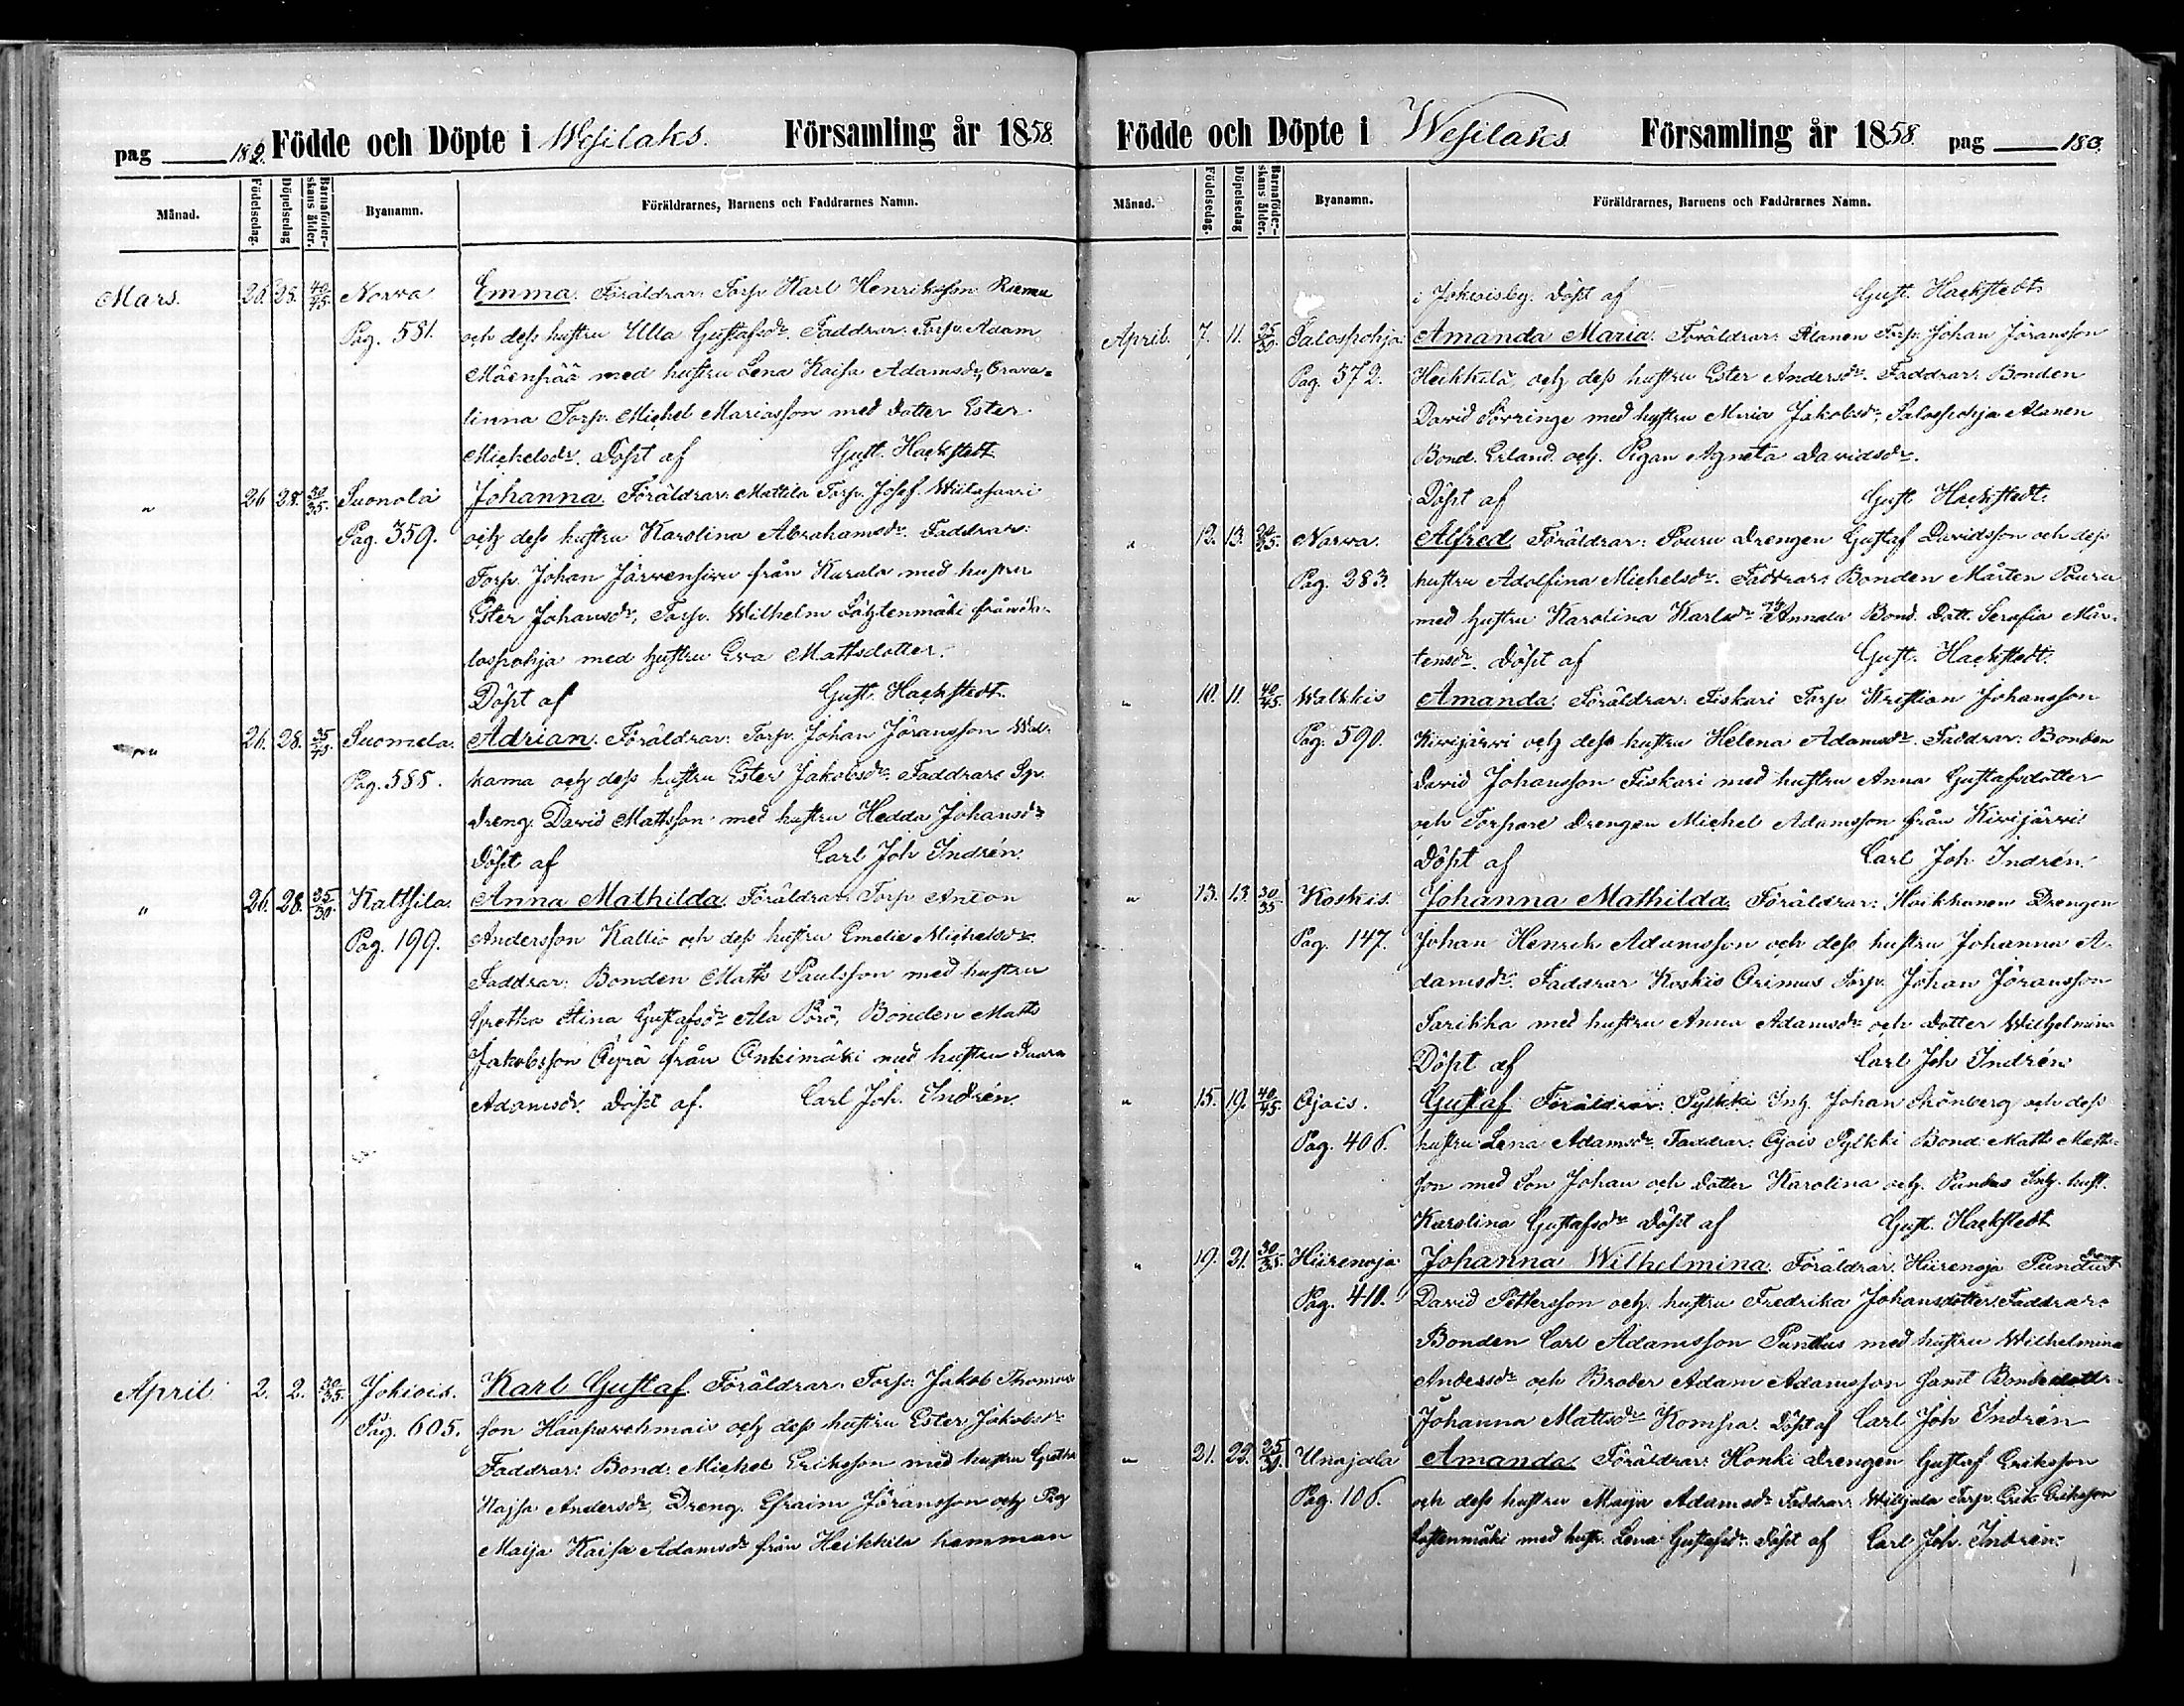 pag 182. Födde och Döpte i Wesilaks. Församling år 1858.
Månad. Födelsedag. Döpelsedag Barnaföderskans ålder. Byanamn. Föräldrarnes, Barnens och Faddrarnes Namn.
Mars. 20. 25. 40/45. Norva Emma. Föräldrar: Torp. Karl Henriksson
Pag. 581. och dess hustru Ulla Gustafsdr. Faddrar: Torp. Adam
Mäenpää med hustru Lena Kaisa Adamsdr, Orava-
linna Torp. Michel Mariasson med dotter Ester
Michelsdr. Döpt af Gust. Hackstedt
" 26 28. 30/35. Suonola Johanna. Föräldrar: Mattila Torp. Josef Wiitasaari
Pag. 359. och dess hustru Karolina Abrahamsdr. Faddrar:
Torp. Johan Järvensivu från Kurala med hustru
Ester Johansdr, Torp. Wilhelm Lähtenmäki från Sa-
lospohja med hustru Eva Mattsdotter.
Döpt af Gust. Hackstedt.
" 26. 28. Suomela. Adrian. Föräldrar: Torp. Johan Jöransson
Pag. 588. kama och dess hustru Ester Jakobsdr. Faddrar: Sp.
dreng. David Mattsson med hustru Hedda Johansdr
Döpt af Carl Joh Indrén.
" 26. 28. 25/30. Kaltsila. Anna Mathilda. Föräldrar: Torp. Anton
Pag. 199. Andersson Kallio och dess hustru Emelie Michelsdr.
Faddrar: Bonden Matts Paulsson med hustru
Gretha Stina Gustafsdr Ala Pörö, Bonden Matts
Jakobsson Äyrä från Onkimäki med hustru Saara
Adamsdr. Döpt af. Carl Joh. Indrén.
April 2. 2. 30/35. Jokiois. Karl Gustaf Föräldrar: Torp: Jakob Thomas-
Pag. 605. son och dess hustru Ester Jakobsdr
Faddrar: Bond: Michel Eriksson med hustru Gretha
Kajsa Andersdr, Dreng. Efraim Jöransson och Pig
Maija Kaisa Adamsdr från Heikkila hemman
Födde och Döpte i Wesilaks Församling år 1858. pag 183.
Månad. Födelsedag. Döpelsedag Barnaföderskans ålder. Byanamn. Föräldrarnes, Barnens och Faddrarnes Namn.
i Jokioisby. Döpt af Gust. Hackstedt.
April. 7. 11. 25/30. Salospohja Amanda Maria. Föräldrar: Alanen Torp. Johan Jöransson
Pag. 572. Heikkilä, och dess hustru Ester Andersdr. Faddrar: Bonden
David Sörringe med hustru Maria Jakobsdr, Salospohja Alanen
Bond. Erland och Pigan Agneta Davidsdr.
Döpt af Gust Hackstedt.
" 12. 13. Narva. Alfred. Föräldrar: Pouru Drengen Gustaf Davidsson och dess
Pag. 283. hustru Adolfina Michelsdr. Faddrar: Bonden Mårten Pouru
med hustru Karolina Karlsdr Annala Bond. Dott. Serafia Mår-
tensdr. Döpt af Gust. Hackstedt.
" 10. 11. 40/45. Walkkis Amanda. Föräldrar: Fiskari Torp. Kristian Johansson
Pag. 590. Kivijärvi och dess hustru Helena Adamsdr. Faddrar: Bonden
David Johansson Fiskari med hustru Anna Gustafsdotter
och Torpare Drengen Michel Adamsson från Kivijärvi
Döpt af Carl Joh Indrén.
" 13. 13. 30/35 Koskis. Johanna Mathilda. Föräldrar: Haikkonen Drengen
Pag. 147. Johan Henrik Adamsson och dess hustru Johanna A-
damsdr. Faddrar Koskis Orimus Torp. Johan Jöransson
Sarikka med hustru Anna Adamsdr och dotter Wilhelmina
Döpt af Carl Joh Indrén
" 15. 19. 40/45. Ojois. Gustaf. Föräldrar: Pylkki Inh. Johan Skönberg och dess
Pag. 406. hustru Lena Adamsdr. Faddrar: Ojois Pylkki Bond. Matts Matts-
son med Son Johan och dotter Karolina och Pundus Inh. hust.
Karolina Gustafsdr Döpt af Gust. Hackstedt
" 19. 21. 30/35. Hiirenoja Johanna Wilhelmina. Föräldrar: Hiirenoja Pundus dreng
Pag. 410. David Pettersson och hustru Fredrika Johansdotter. Faddrar:
Bonden Carl Adamsson Pundus med hustru Wilhelmina
Andersdr och Broder Adam Adamsson samt Bondedottr
Johanna Mattsdr Kompa. Döpt af Carl Joh Indrén
" 21. 23. 25/30. Unajala Amanda. Föräldrar: Honki Drengen Gustaf Eriksson
Pag. 106. och dess hustru Maija Adamsdr Faddrar: Torp. Erik Eriksson
med hustr. Lena Gustafsdr. Döpt af Carl Joh. Indrén.